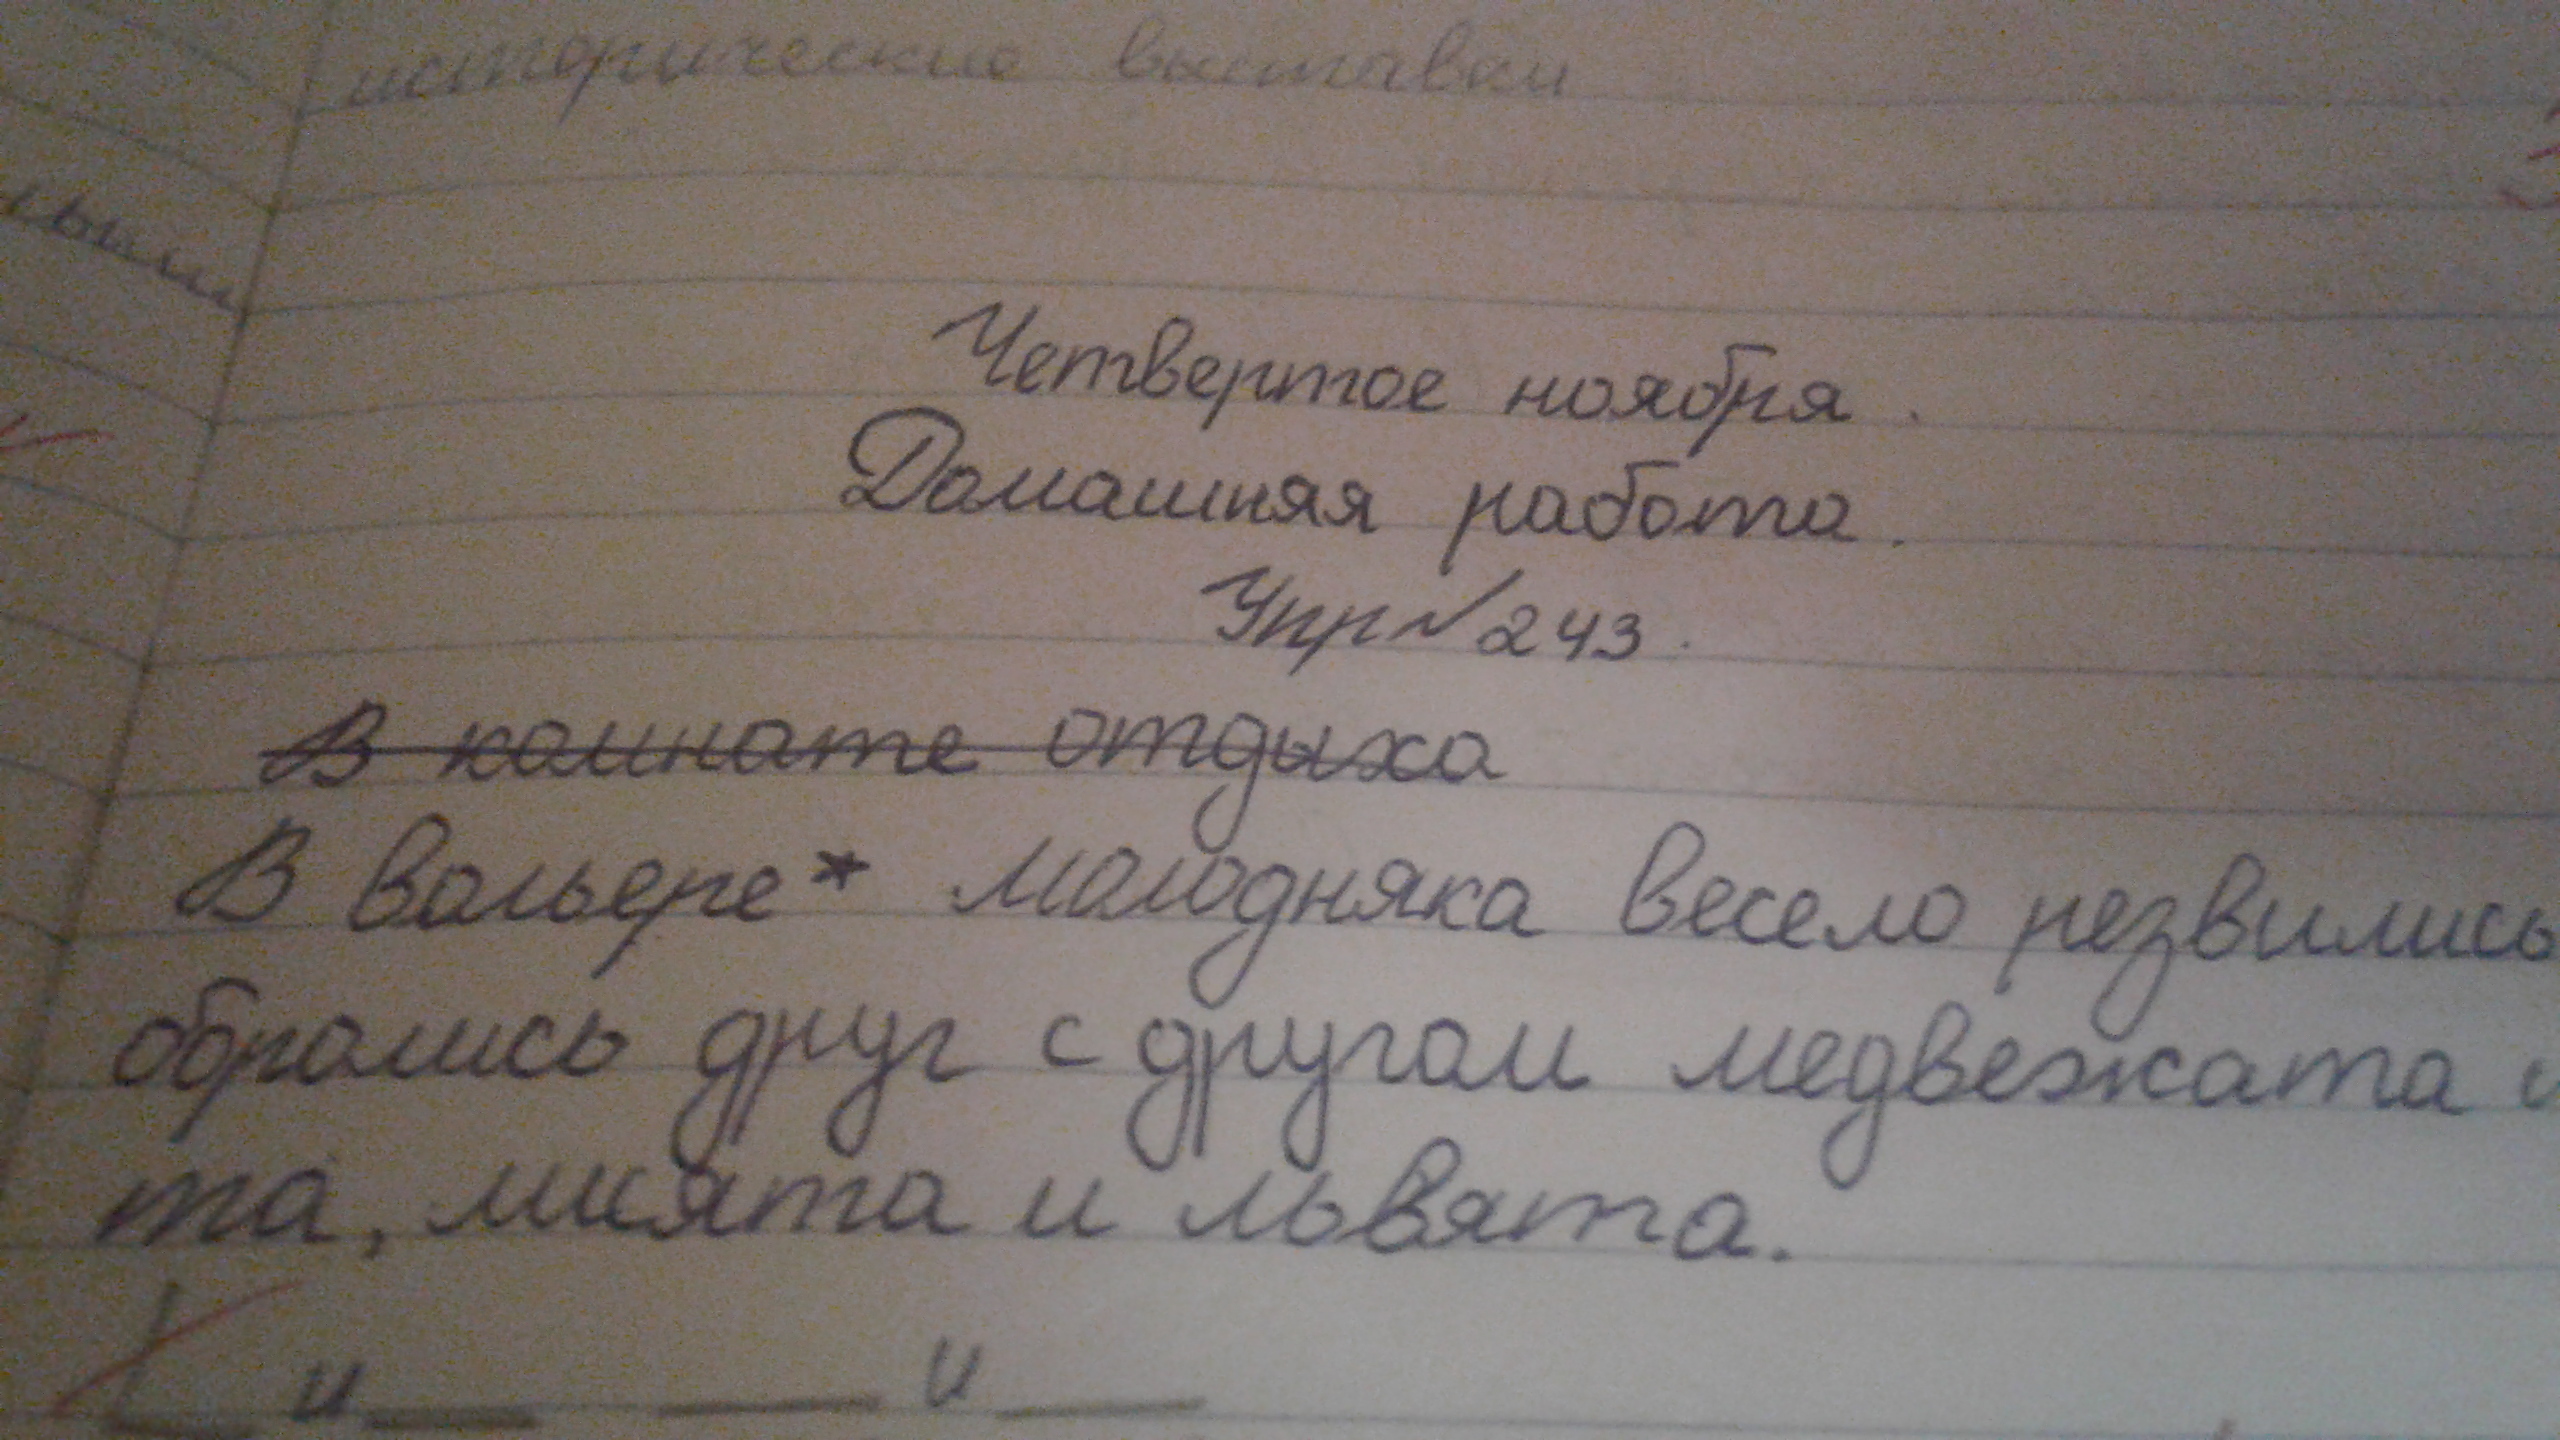 исторические выставки
Четвертое ноября.
Домашняя работа.
Упр №243.
В комнате отдыха
В вольере* молодняка весело резвились
обролись друг с другом медвежата и
та, лисята и львята.
и и